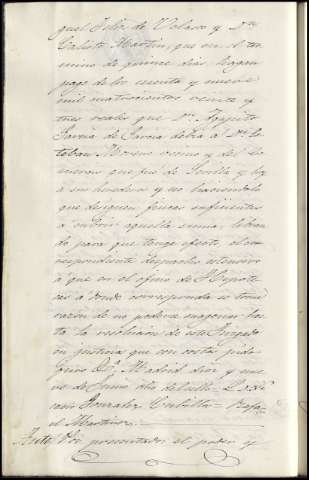 guel Felix de Velasco y Dn.
Calisto Martin, que en el ter
mino de quince dias hagan
pago de los cuenta y nueve
mil cuatrocientos veinte y
tres reales que Dn. Agapito
Garcia de Garcia debia a Dn. Es
teban Moreno vecino y del Co
mercio que fue de Sevilla y hoy
a sus herederos y no haciendolo
que designen fincas suficientes
a cubrir aquella suma, libran
do para que tenga efecto el cor
respondiente despacho estensivo
á que en el oficio de Hipote
cas á donde corresponda se tome
razon de no poderse enagenar has
ta la resolucion de este Juzgado
en justicia que con costas pido
juro &a. Madrid diez y nue
ve de Junio
Gonzalez Rafa
el Martinez.
Auto Por presentado el poder y